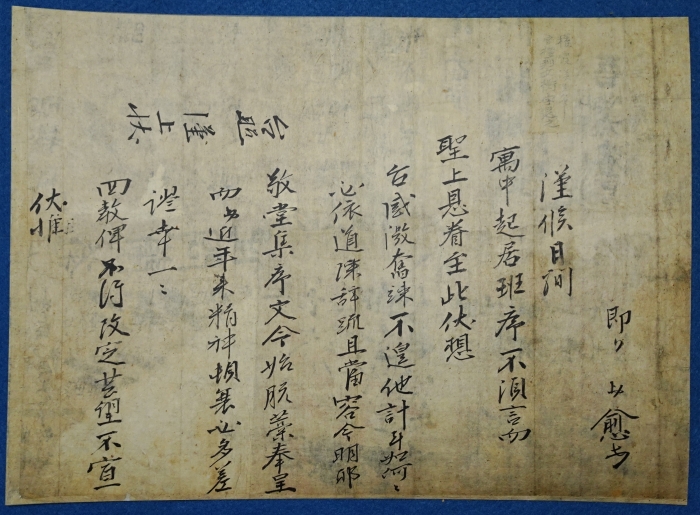 謹候日間
寓中起居班序不須言而
聖上恩眷至此伏想
台感激奮 不遑他計耳如何々
必依道陳辭疏且當容今明耶
敬堂集序文今始脫藁奉呈
而 近年來精神頓衰必多差
證幸一々
回教俾 得改定甚望不宣
伏惟
台照謹上狀
即日 愈